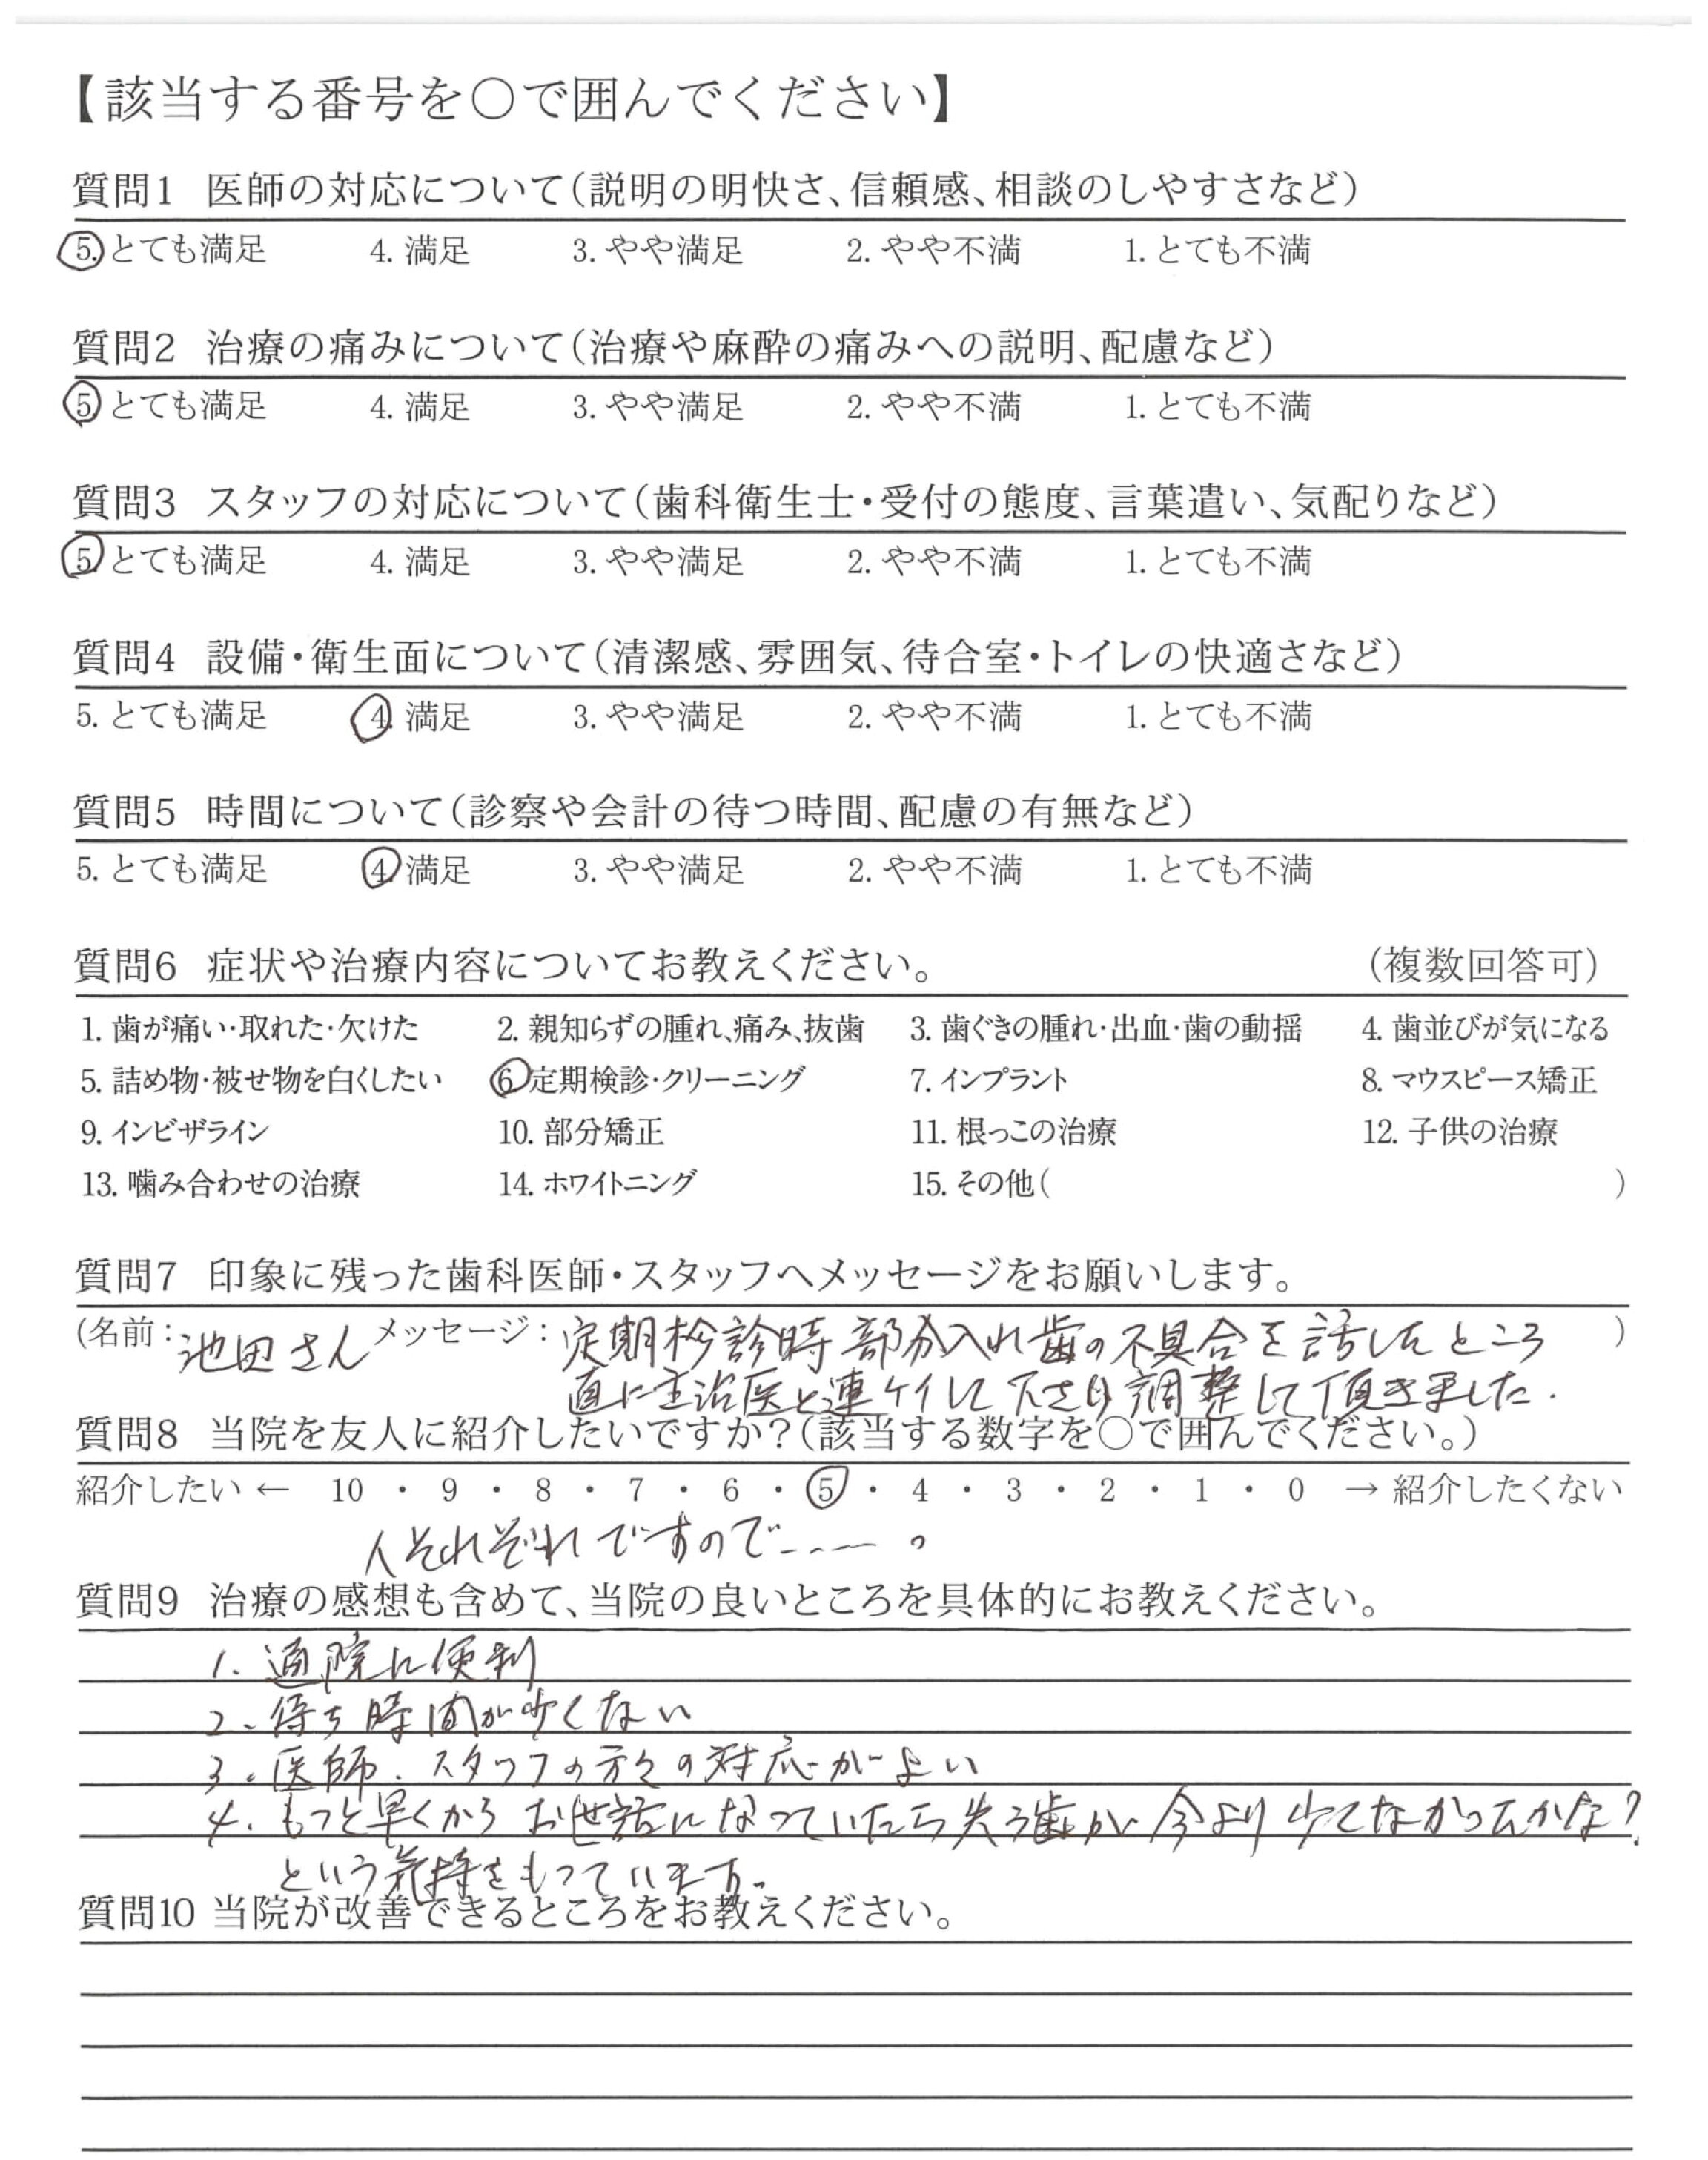 【該当する番号を○で囲んでください】
質問1 医師の対応について(説明の明快さ、信頼感、相談のしやすさなど)
5. とても満足 4. 満足 3. やや満足 2. やや不満 1. とても不満
質問2 治療の痛みについて(治療や麻酔の痛みへの説明、配慮など)
5. とても満足 4. 満足 3. やや満足 2. やや不満 1. とても不満
質問3 スタッフの対応について(歯科衛生士・受付の態度、言葉遣い、気配りなど)
5. とても満足 4. 満足 3. やや満足 2. やや不満 1. とても不満
質問4 設備・衛生面について(清潔感、雰囲気、待合室・トイレの快適さなど)
5. とても満足 4. 満足 3. やや満足 2. やや不満 1. とても不満
質問5 時間について(診察や会計の待つ時間、配慮の有無など)
5. とても満足 4. 満足 3. やや満足 2. やや不満 1. とても不満
質問6 症状や治療内容についてお教えください。 (複数回答可)
1. 歯が痛い・取れた・欠けた 2. 親知らずの腫れ、痛み、抜歯 3. 歯ぐきの腫れ・出血・歯の動揺 4. 歯並びが気になる
5. 詰め物・被せ物を白くしたい 6. 定期検診・クリーニング 7. インプラント 8. マウスピース矯正
9. インビザライン 10. 部分矯正 11. 根っこの治療 12. 子供の治療
13. 噛み合わせの治療 14. ホワイトニング 15. その他( )
質問7 印象に残った歯科医師・スタッフへメッセージをお願いします。
(名前:池田さん メッセージ:定期検診時 部分入れ歯の不具合を話したところ )
直に主治医と連ケイして下さり調整して頂きました.
質問8 当院を友人に紹介したいですか?(該当する数字を○で囲んでください。)
紹介したい ← 10 ・ 9 ・ 8 ・ 7 ・ 6 ・ 5 ・ 4 ・ 3 ・ 2 ・ 1 ・ 0 → 紹介したくない
人それぞれですので……。
質問9 治療の感想も含めて、当院の良いところを具体的にお教えください。
1. 通院に便利
2. 待ち時間が少くない
3. 医師.スタッフの方々の対応がよい
4. もっと早くからお世話になっていたら失う歯が今より少くなかったかな?
という気持をもっています。
質問10 当院が改善できるところをお教えください。